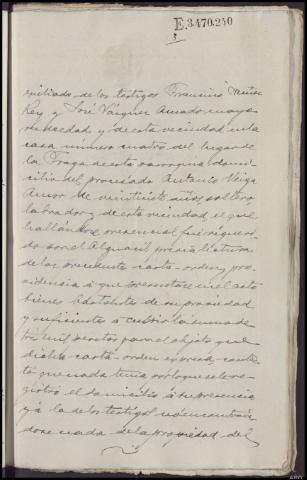 E.3470.240
auxiliado de los testigos Francisco
Rey y José Vázquez Amado, mayo-
res de edad y de esta vecindad en la
casa número cuatro del lugar de
la Fraga de esta parroquia domi-
cilio del procesado Antonio Veiga
Amor de veintisiete años soltero
labrador y de esta vecindad, el que
hallándose presencial fué requeri-
do por el Alguacil previa lectura
de la precedente carta-orden y pro-
videncia a que presentase en el acto
bienes de su propiedad
y suficientes á cubrir la suma de
tres mil pesetas para el objeto que
dicha carta-orden expresa contes-
tó que nada tenia por lo que se re-
gistró el domicilio á su presencia
y á la de los testigos no encontrán-
dose nada de la propiedad del